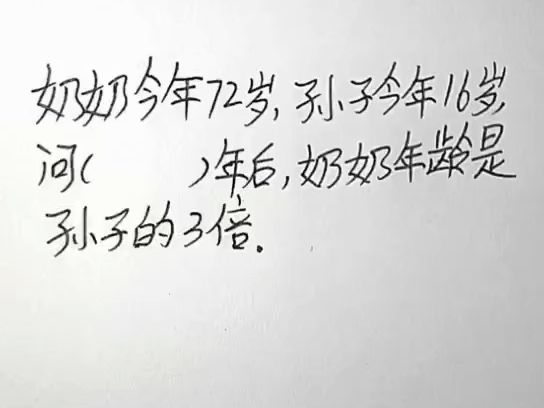 奶奶今年72岁,孙子今年16岁,
问(  )年后,奶奶年龄是
孙子的3倍.